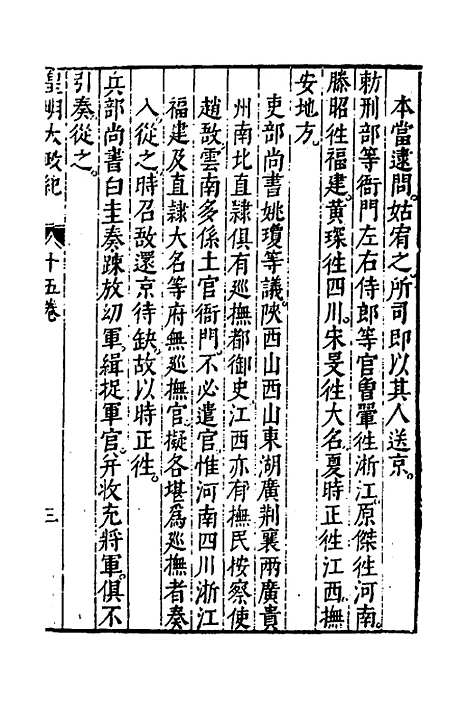 本當逮問。姑宥之。所司即以其人送京。
勅刑部等衙門左右侍郎等官曾翬往浙江。原傑往河南。
滕昭往福建。黃琛往四川。宋旻往大名。夏時正往江西。撫
安地方。
吏部尚書姚夔等議。陝西山西山東湖廣荆襄兩廣貴
州南北直隷俱有巡撫都御史江西亦有撫民按察使
趙敔。雲南多係土官衙門。不必遣官。惟河南四川浙江
福建及直隷大名等府無巡撫官。擬各堪爲巡撫者奏
入。從之。時召敔還京待缺。故以時正往。
兵部尚書白圭奏。踈放幼軍。緝捉軍官。并收充將軍。俱不
引奏。從之。
皇明大政紀
十五卷
三